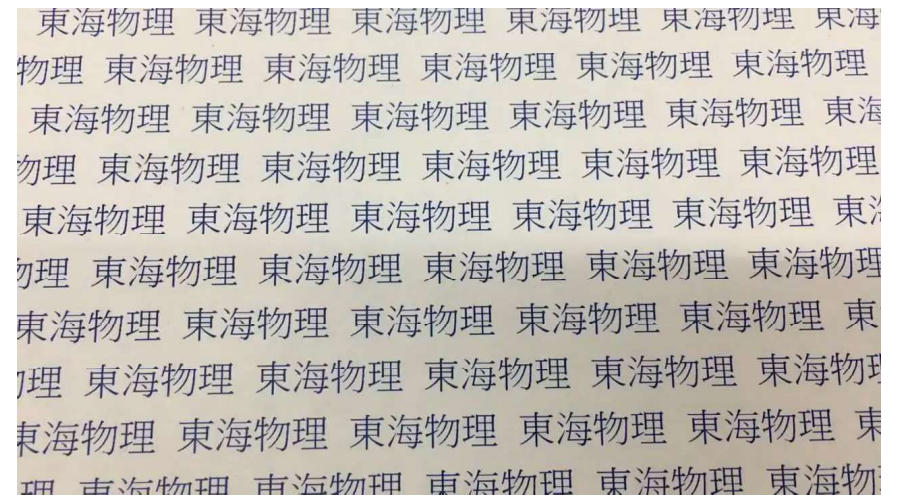 東海物理 東海物理 東海物理 東海物理 東海物理 東海
物理 東海物理 東海物理 東海物理 東海物理 東海物理
東海物理 東海物理 東海物理 東海物理 東海物理 東海
物理 東海物理 東海物理 東海物理 東海物理 東海物理
東海物理 東海物理 東海物理 東海物理 東海物理 東海
物理 東海物理 東海物理 東海物理 東海物理 東海物理
東海物理 東海物理 東海物理 東海物理 東海物理 東
理 東海物理 東海物理 東海物理 東海物理 東海物理
東海物理 東海物理 東海物理 東海物理 東海物理 東
理 東海物理 東海物理 東海物理 東海物理 東海物